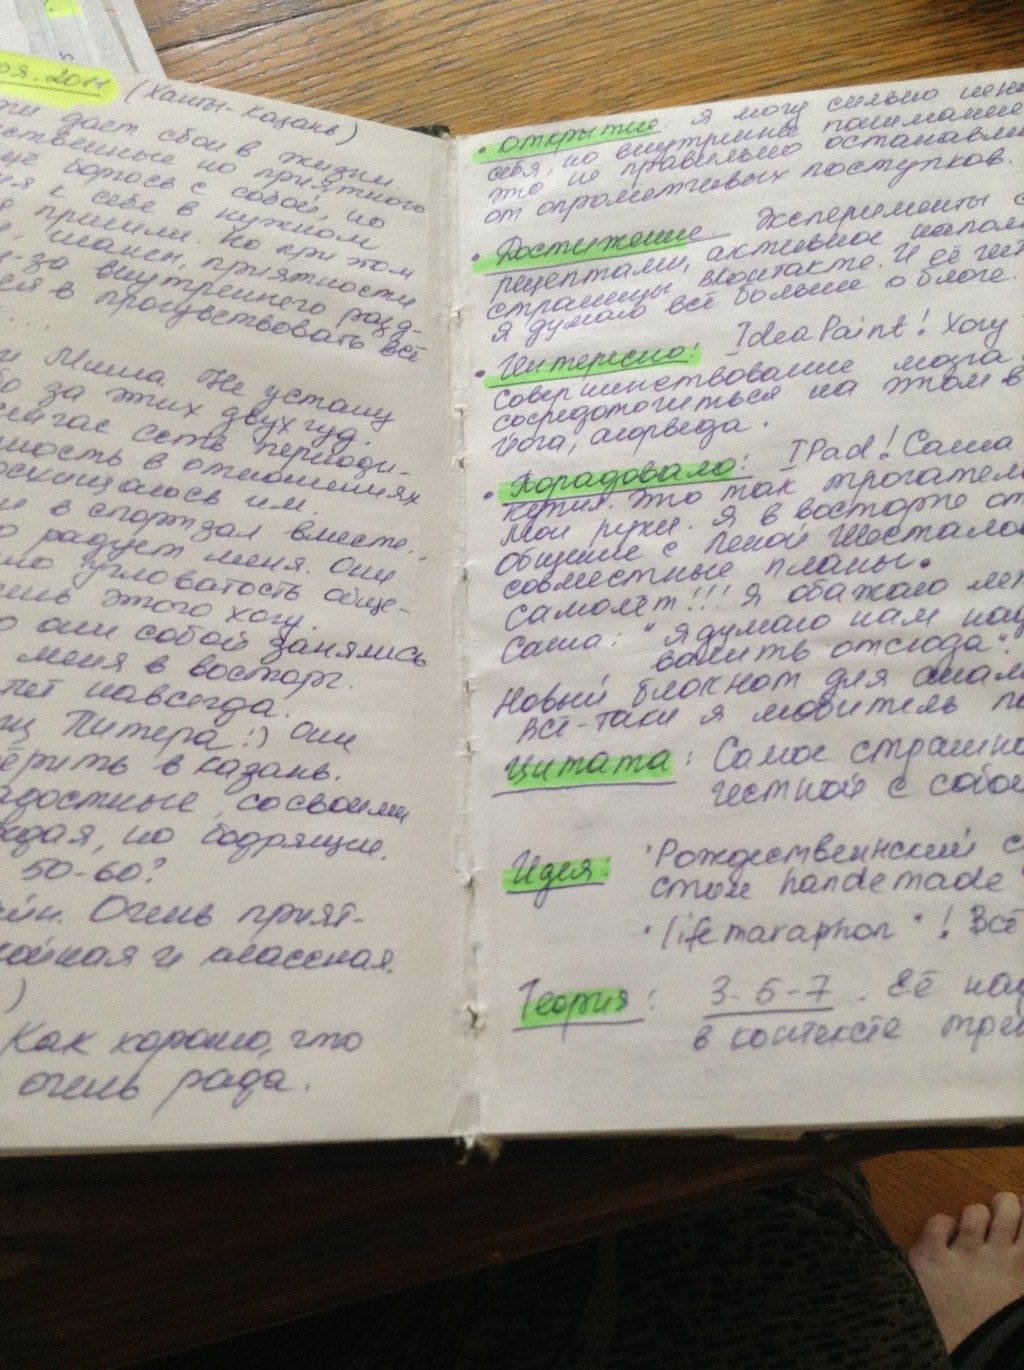 оя. 2011 (Ханты-Казань)
ти даёт сбои в жизни
ственные но приятного
борюсь с собой, но
ия к себе в нужном
пришли. Но при этом
е, шансы, приятности
из-за внутреннего разд-
ся в прочувствовать всё
....
и Миша. Не устану
о за этих двух чуд.
сейчас есть периоди-
ность в отношениях
осхищаюсь им.
и в спортзал вместе.
о радует меня. Они
ло угловатость обще-
ень этого хочу.
о они собой занялись
меня в восторг.
лет навсегда.
Питера :) Они
ерить в Казань.
адостные, со своими
ждая, но бодрящие.
50-60?
Очень прият-
койная и классная.
)
Как хорошо, что
очень рада.
• Открытие. Я могу сильно
себя, но внутреннее понимание
это не правильно останавли
от опрометчивых поступков.
• Достижение Эксперименты с
рецептами, активное наполн
страницы вконтакте. И её
я думаю всё больше о блоге.
• Интересно: IdeaPaint! Хочу
совершенствование мозга.
сосредоточиться на этом в
йога, аюрведа.
• Порадовало: IPad! Саша
купил. Это так трогатель
мои руки. Я в восторге от
общение с Леной Шестало
совместные планы.
Самолёт!!! Я обожаю лет
Саша: "Я думаю нам над
валить отсюда".
Новый блокнот для
Всё-таки я любитель
Цитата: Самое страшно
честной с собой
Идея: "Рождественнский с
стол handemade
"lifemaraphon"! Всё
Теория: 3-5-7. Её над
в контексте